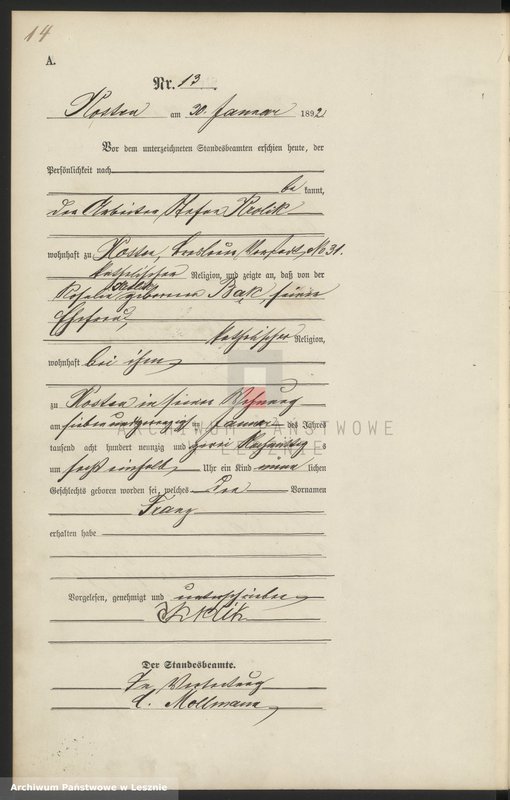 14
A.
Nr. 13
Kosten am 30. Januar 1892
Vor dem unterzeichneten Standesbeamten erschien heute, der
Persönlichkeit nach
be kannt,
der Arbeiter Stefan Krolik
wohnhaft zu Kosten, Breslauer Vorstadt, No 31.
katholischer Religion, und zeigte an, daß von der
Rosalie Krolik geborenen Bąk, seiner
Ehefrau,
katholischer Religion,
wohnhaft bei ihm
zu Kosten in seiner Wohnung
am siebenundzwanzig ten Januar des Jahres
tausend acht hundert neunzig und zwei Nachmittag s
um sechs einhalb Uhr ein Kind männ lichen
Geschlechts geboren worden sei, welches den Vornamen
Franz
erhalten habe
Vorgelesen, genehmigt und unterschrieben
Der Standesbeamte.
In Vertretung
Mollmann
ARCHIWUM PAŃSTWOWE
W LESZNIE
Archiwum Państwowe w Lesznie